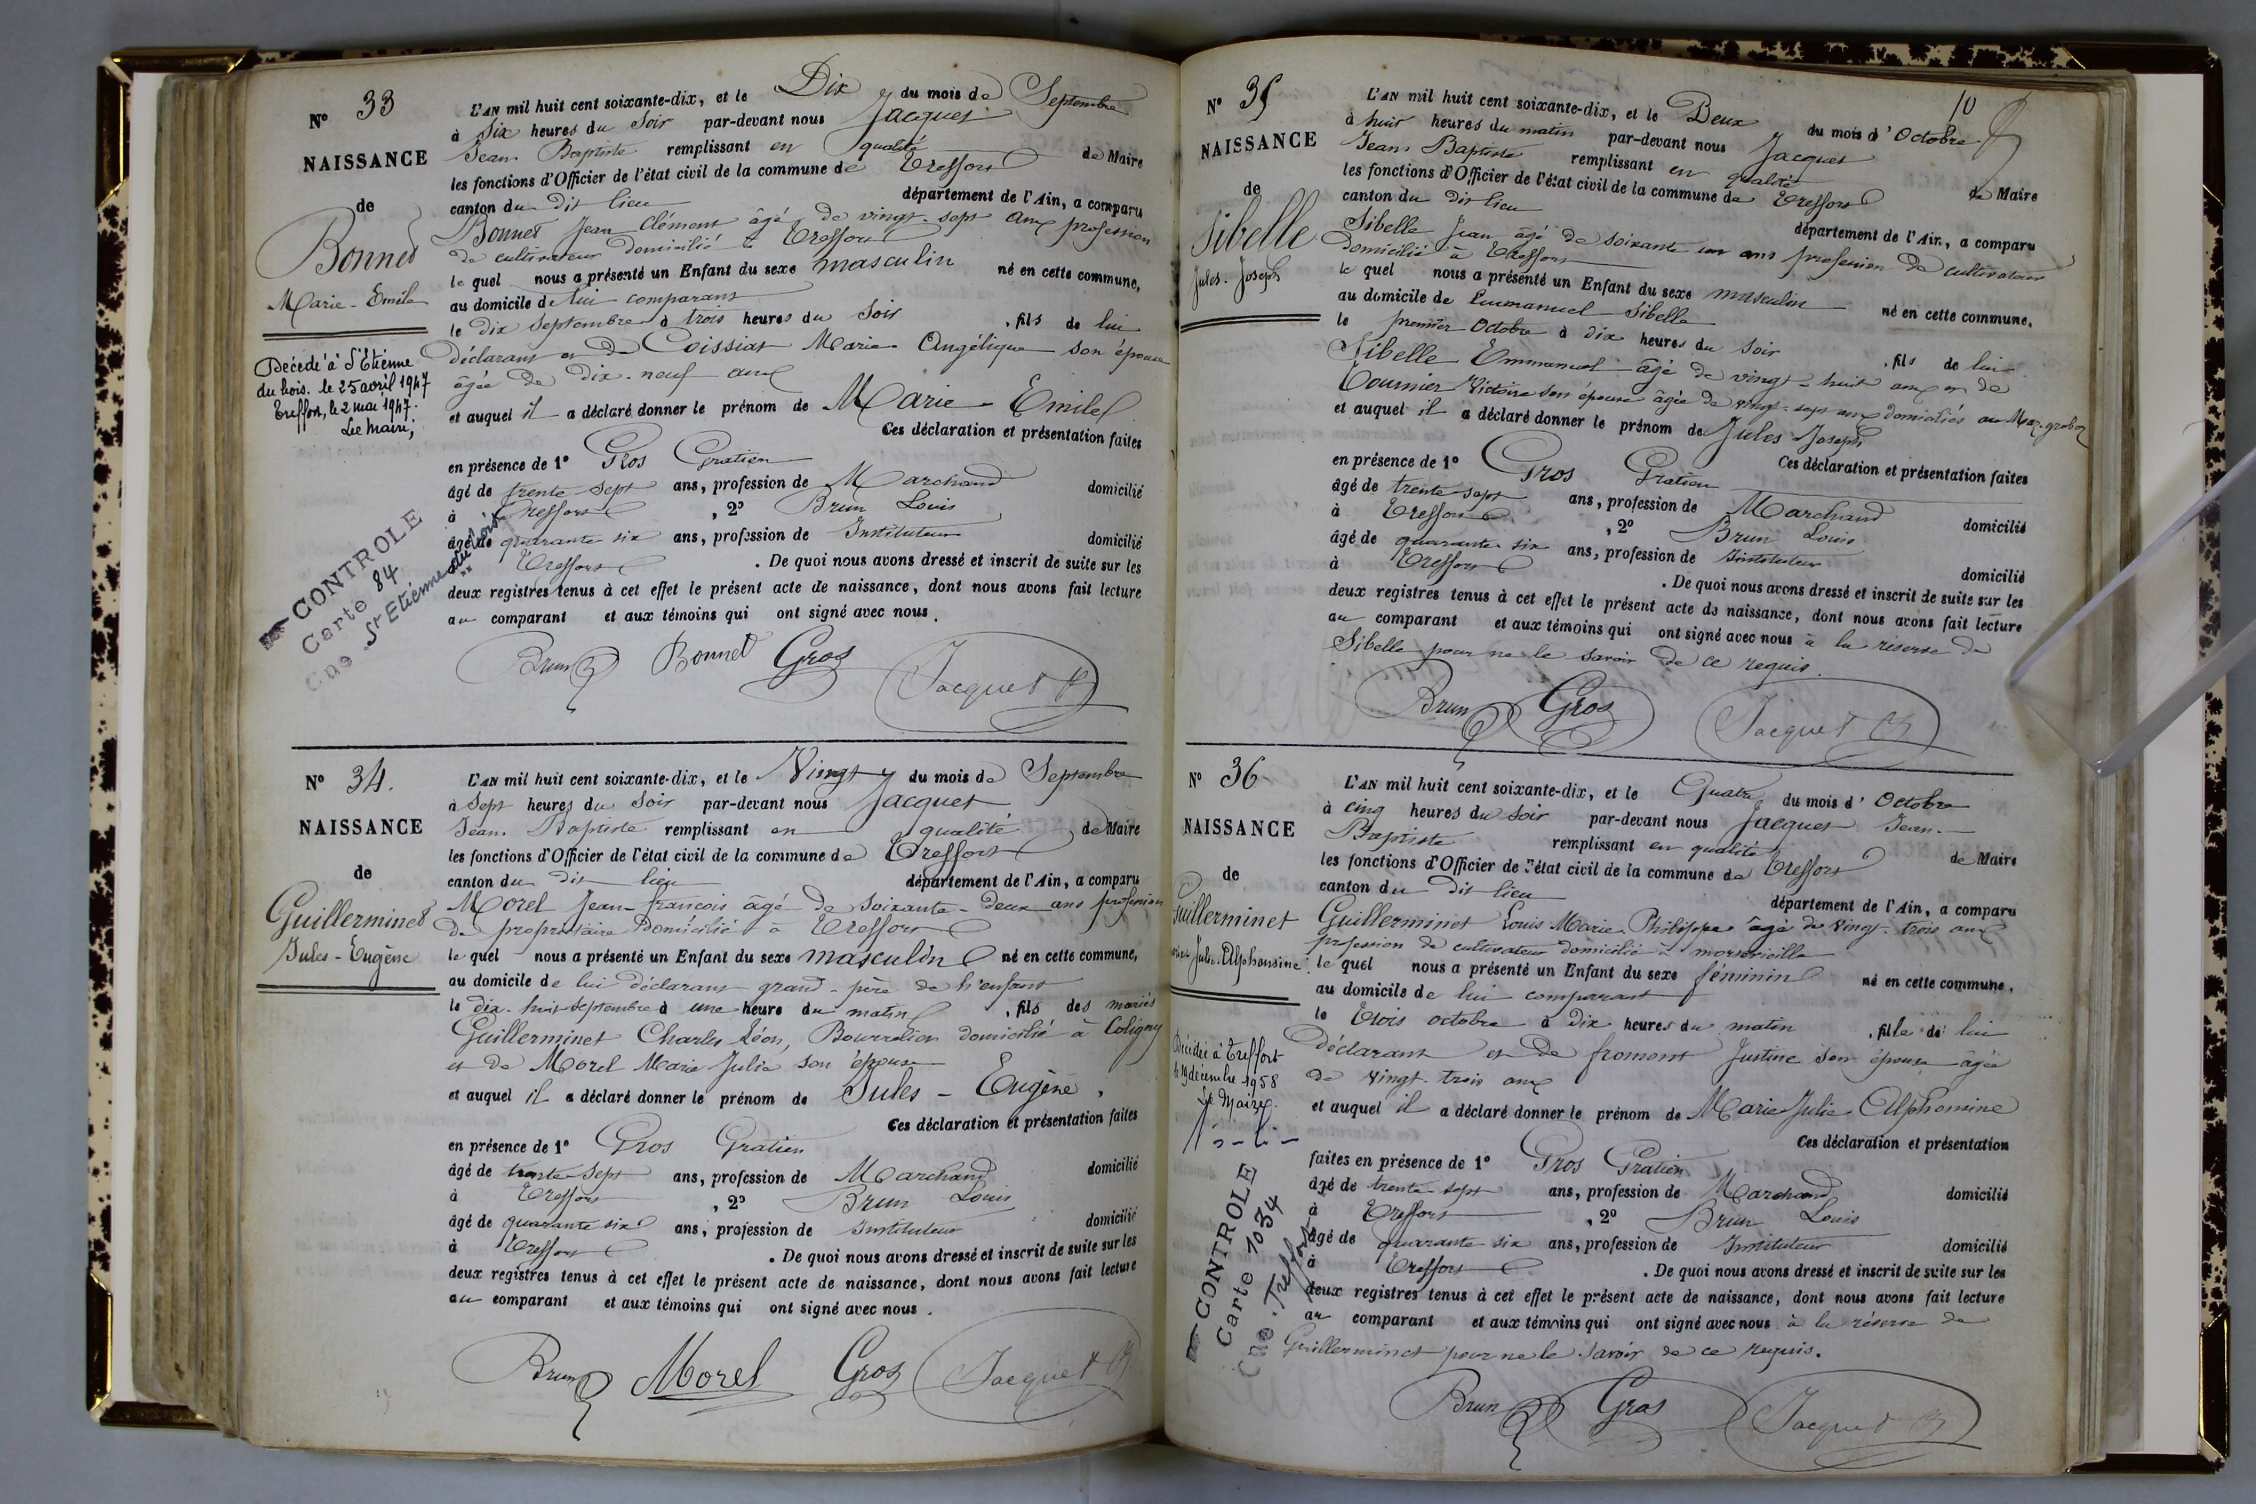 N° 33
NAISSANCE
de
Bonnet
Marie-Emile
Décédé à St Etienne
du bois. le 25 avril 1947
Treffort, le 2 mai 1947.
Le Maire,
CONTROLE
Carte 84
Cne St Etienne du bois
L'AN mil huit cent soixante-dix, et le Dix du mois de Septembre
à Six heures du Soir par-devant nous Jacquet
Jean Baptiste remplissant en qualité de Maire
les fonctions d'Officier de l'état civil de la commune de Treffort
canton du dit lieu département de l'Ain, a comparu
Bonnet Jean Clément âgé de vingt-sept ans profession
de cultivateur domicilié à Treffort
le quel nous a présenté un Enfant du sexe masculin né en cette commune,
au domicile de lui comparant
le dix Septembre à trois heures du Soir, fils de lui
déclarant et de Coissiat Marie Angélique son épouse
âgée de dix-neuf ans
et auquel il a déclaré donner le prénom de Marie-Emile
Ces déclaration et présentation faites
en présence de 1° Gros Gratien
âgé de trente sept ans, profession de Marchand domicilié
à Treffort, 2° Brun Louis
âgé de quarante six ans, profession de Instituteur domicilié
Treffort. De quoi nous avons dressé et inscrit de suite sur les
deux registres tenus à cet effet le présent acte de naissance, dont nous avons fait lecture
au comparant et aux témoins qui ont signé avec nous.
Brun Bonnet Gros Jacquet
N° 34.
NAISSANCE
de
Guillerminet
Jules-Eugène
L'AN mil huit cent soixante-dix, et le Vingt du mois de Septembre
à Sept heures du Soir par-devant nous Jacquet
Jean Baptiste remplissant en qualité de Maire
les fonctions d'Officier de l'état civil de la commune de Treffort
canton du dit lieu département de l'Ain, a comparu
Morel Jean-François âgé de soixante-deux ans profession
de propriétaire Domicilié à Treffort
le quel nous a présenté un Enfant du sexe masculin né en cette commune,
au domicile de lui déclarant grand-père de l'enfant
le dix-huit Septembre à une heure du matin, fils des mariés
Guillerminet Charles Léon, Bourrelier domicilié à Coligny
et de Morel Marie Julie son épouse
et auquel il a déclaré donner le prénom de Jules-Eugène.
Ces déclaration et présentation faites
en présence de 1° Gros Gratien
âgé de trente sept ans, profession de Marchand domicilié
à Treffort, 2° Brun Louis
âgé de quarante six ans, profession de Instituteur domicilié
à Treffort. De quoi nous avons dressé et inscrit de suite sur les
deux registres tenus à cet effet le présent acte de naissance, dont nous avons fait lecture
au comparant et aux témoins qui ont signé avec nous.
Brun Morel Gros Jacquet
10
N° 35
NAISSANCE
de
Sibelle
Jules-Joseph
L'AN mil huit cent soixante-dix, et le Deux du mois d'Octobre
à huit heures du matin par-devant nous Jacquet
Jean Baptiste remplissant en qualité de Maire
les fonctions d'Officier de l'état civil de la commune de Treffort
canton du dit lieu département de l'Ain, a comparu
Sibelle Jean âgé de soixante un ans profession de cultivateur
domicilié à Treffort
le quel nous a présenté un Enfant du sexe masculin né en cette commune,
au domicile de Emmanuel Sibelle
le premier Octobre à dix heures du Soir, fils de lui
Sibelle Emmanuel âgé de vingt-huit ans et de
Tournier Victoire son épouse âgée de vingt-sept ans domiciliés au Mas-groboz
et auquel il a déclaré donner le prénom de Jules Joseph
Ces déclaration et présentation faites
en présence de 1° Gros Gratien
âgé de trente sept ans, profession de Marchand domicilié
à Treffort, 2° Brun Louis
âgé de quarante six ans, profession de Instituteur domicilié
à Treffort. De quoi nous avons dressé et inscrit de suite sur les
deux registres tenus à cet effet le présent acte de naissance, dont nous avons fait lecture
au comparant et aux témoins qui ont signé avec nous à la réserve de
Sibelle pour ne le savoir de ce requis.
Brun Gros Jacquet
N° 36
NAISSANCE
de
Guillerminet
Julie Alphonsine
Décédée à Treffort
le 19 décembre 1958
Le Maire.
CONTROLE
Carte 1034
Cne Treffort
L'AN mil huit cent soixante-dix, et le Quatre du mois d'Octobre
à cinq heures du soir par-devant nous Jacquet Jean-
Baptiste remplissant en qualité de Maire
les fonctions d'Officier de l'état civil de la commune de Treffort
canton du dit lieu département de l'Ain, a comparu
Guillerminet Louis Marie Philippe âgé de vingt-trois ans
profession de cultivateur domicilié à
le quel nous a présenté un Enfant du sexe féminin né en cette commune,
au domicile de lui comparant
le Trois octobre à Dix heures du matin, fille de lui
déclarant et de fromont Justine son épouse âgée
de vingt-trois ans
et auquel il a déclaré donner le prénom de Marie Julie Alphonsine
Ces déclaration et présentation
faites en présence de 1° Gros Gratien
âgé de trente sept ans, profession de Marchand domicilié
à Treffort, 2° Brun Louis
âgé de quarante six ans, profession de Instituteur domicilié
à Treffort. De quoi nous avons dressé et inscrit de suite sur les
deux registres tenus à cet effet le présent acte de naissance, dont nous avons fait lecture
au comparant et aux témoins qui ont signé avec nous à la réserve de
Guillerminet pour ne le savoir de ce requis.
Brun Gros Jacquet